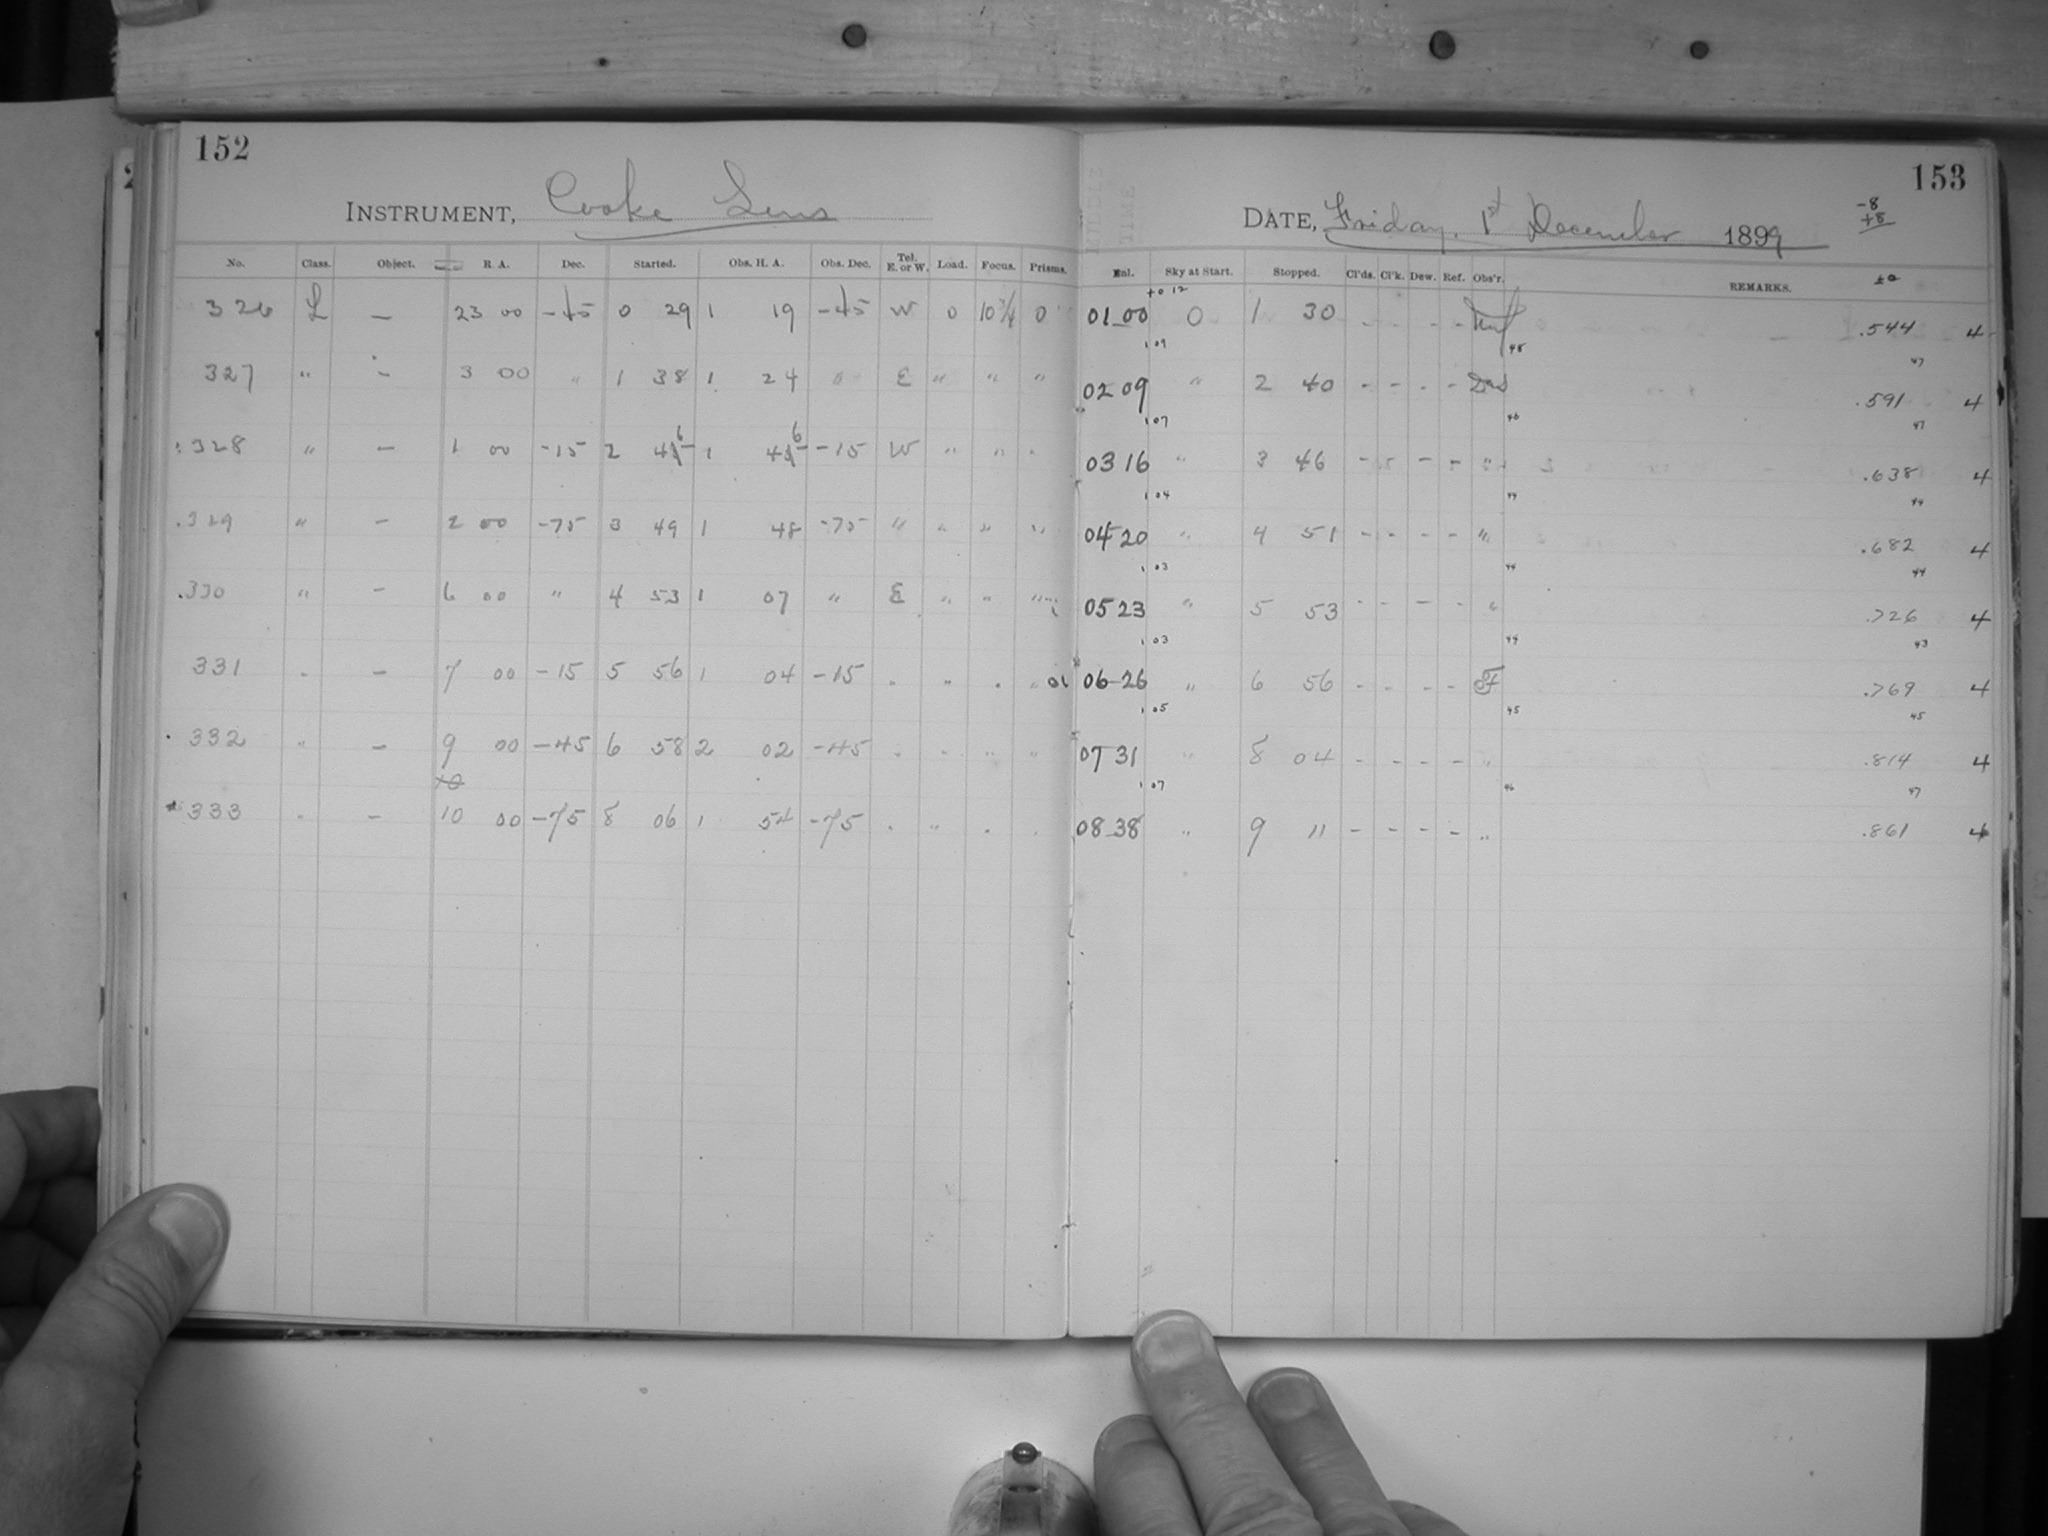 152
INSTRUMENT, Cooke Lens
No. Class. Object. R. A. Dec. Started. Obs. H. A. Obs. Dec. Tel. E. or W. Load. Focus. Prisms.
326 L — 23 00 -45 0 29 1 19 -45 W 0 10¾ 0
327 " - 3 00 " 1 38 1 24 " E " " "
328 " - 1 00 -15 2 46 1 46 -15 W " " "
329 " - 2 00 -75 3 49 1 48 -75 " " " "
330 " - 6 00 " 4 53 1 07 " E " " "
331 " - 7 00 -15 5 56 1 04 -15 " " " "
332 " - 9 00 -45 6 58 2 02 -45 " " " "
333 " - 10 00 -75 8 06 1 54 -75 " " " "
153
-8
+8
DATE, Friday, 1st December 1899
Enl. Sky at Start. Stopped. Cl'ds. Cl'k. Dew. Ref. Obs'r. REMARKS.
+0 12
01 00 0 1 30 - - - - .544 4
1 09 48 47
02 09 " 2 40 - - - - .591 4
1 07 46 47
03 16 " 3 46 - - - - " .638 4
1 04 44 44
04 20 " 4 51 - - - - " .682 4
1 03 44 44
05 23 " 5 53 - - - - " .726 4
1 03 44 43
06 26 " 6 56 - - - - .769 4
1 05 45 45
07 31 " 8 04 - - - - " .814 4
1 07 46 47
08 38 " 9 11 - - - - " .861 4